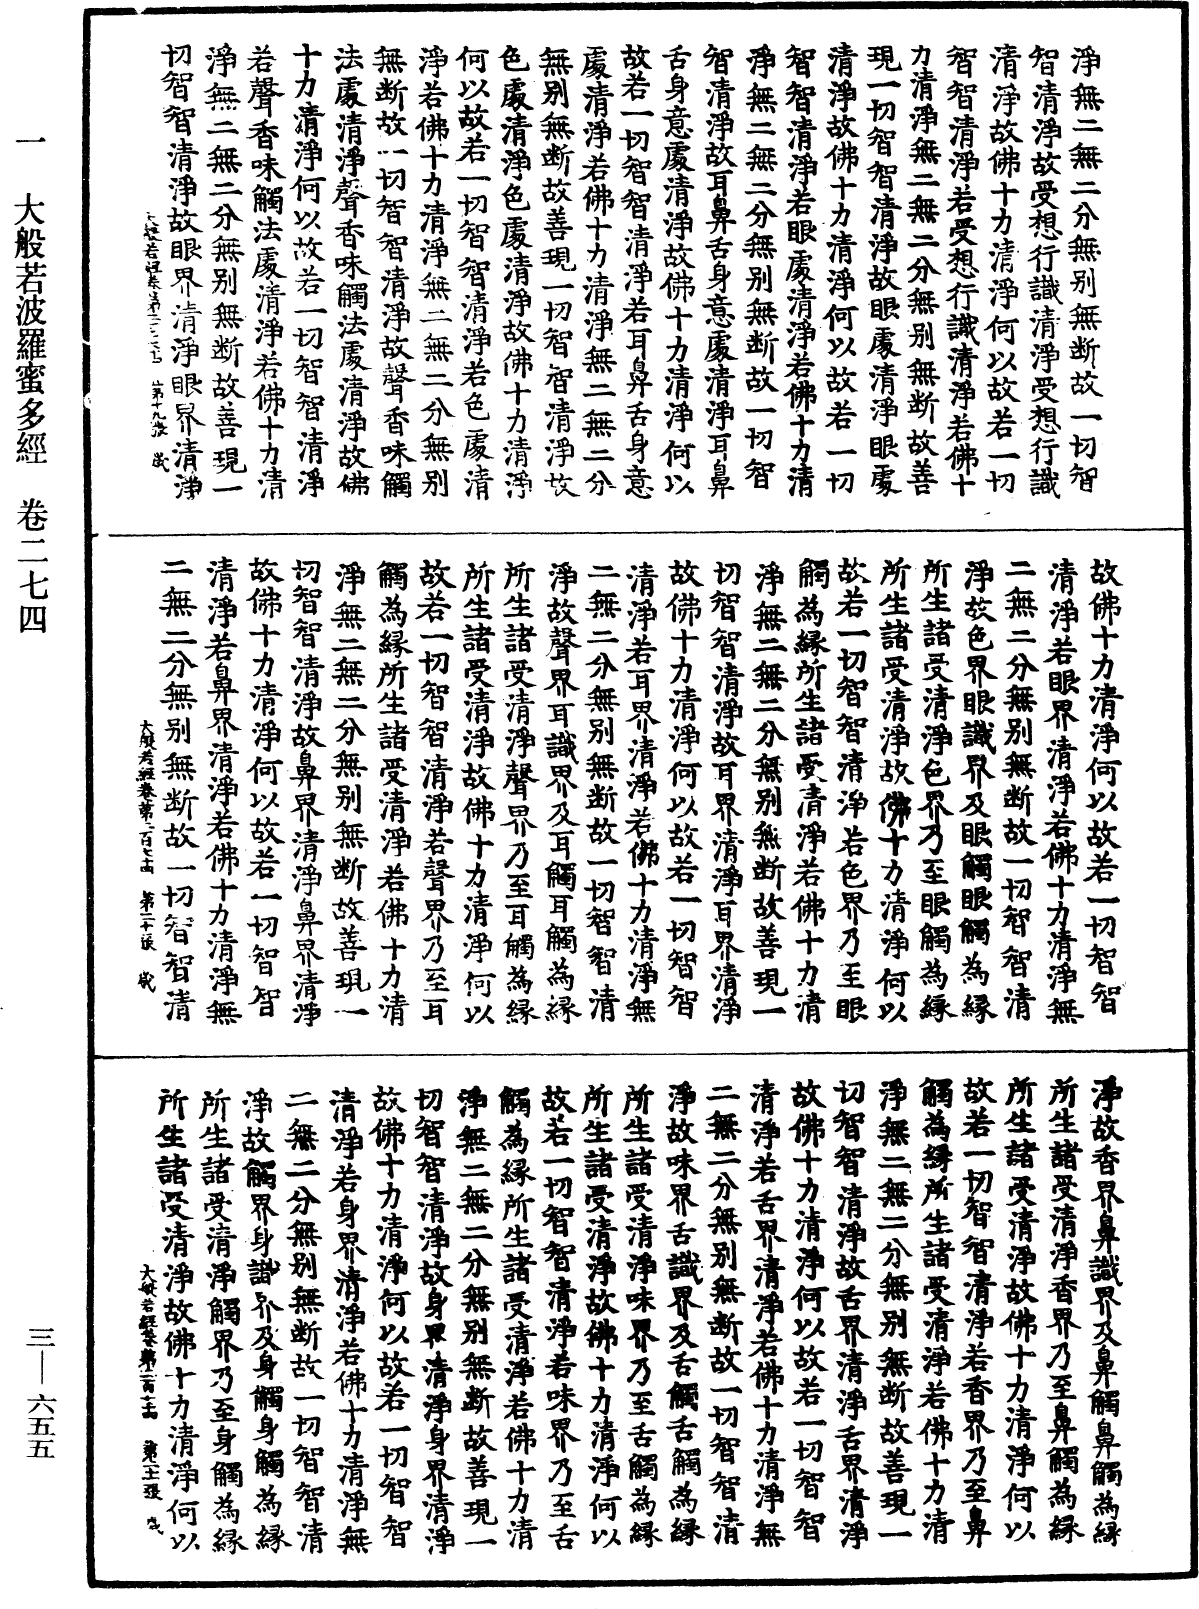 淨無二無二分無别無断故一切智
智清淨故受想行識清淨受想行識
清淨故佛十力清淨何以故若一切
智智清淨若受想行識清淨若佛十
力清淨無二無二分無别無断故善
現一切智智清淨故眼處清淨眼處
清淨故佛十力清淨何以故若一切
智智清淨若眼處清淨若佛十力清
淨無二無二分無别無断故一切智
智清淨故耳鼻舌身意處清淨耳鼻
舌身意處清淨故佛十力清淨何以
故若一切智智清淨若耳鼻舌身意
處清淨若佛十力清淨無二無二分
無别無断故善現一切智智清淨故
色處清淨色處清淨故佛十力清淨
何以故若一切智智清淨若色處清
淨若佛十力清淨無二無二分無别
無断故一切智智清淨故聲香味觸
法處清淨聲香味觸法處清淨故佛
十力清淨何以故若一切智智清淨
若聲香味觸法處清淨若佛十力清
淨無二無二分無别無断故善現一
切智智清淨故眼界清淨眼界清淨
大般若經卷第二百七十四 第十九張 歲
故佛十力清淨何以故若一切智智
清淨若眼界清淨若佛十力清淨無
二無二分無别無断故一切智智清
淨故色界眼識界及眼觸眼觸為縁
所生諸受清淨色界乃至眼觸為縁
所生諸受清淨故佛十力清淨何以
故若一切智智清淨若色界乃至眼
觸為縁所生諸受清淨若佛十力清
淨無二無二分無别無断故善現一
切智智清淨故耳界清淨耳界清淨
故佛十力清淨何以故若一切智智
清淨若耳界清淨若佛十力清淨無
二無二分無别無断故一切智智清
淨故聲界耳識界及耳觸耳觸為縁
所生諸受清淨聲界乃至耳觸為縁
所生諸受清淨故佛十力清淨何以
故若一切智智清淨若聲界乃至耳
觸為縁所生諸受清淨若佛十力清
淨無二無二分無别無断故善現一
切智智清淨故鼻界清淨鼻界清淨
故佛十力清淨何以故若一切智智
清淨若鼻界清淨若佛十力清淨無
二無二分無别無断故一切智智清
大般若經卷第二百七十四 第二十張 歲
淨故香界鼻識界及鼻觸鼻觸為縁
所生諸受清淨香界乃至鼻觸為縁
所生諸受清淨故佛十力清淨何以
故若一切智智清淨若香界乃至鼻
觸為縁所生諸受清淨若佛十力清
淨無二無二分無别無断故善現一
切智智清淨故舌界清淨舌界清淨
故佛十力清淨何以故若一切智智
清淨若舌界清淨若佛十力清淨無
二無二分無别無断故一切智智清
淨故味界舌識界及舌觸舌觸為縁
所生諸受清淨味界乃至舌觸為縁
所生諸受清淨故佛十力清淨何以
故若一切智智清淨若味界乃至舌
觸為縁所生諸受清淨若佛十力清
淨無二無二分無别無断故善現一
切智智清淨故身界清淨身界清淨
故佛十力清淨何以故若一切智智
清淨若身界清淨若佛十力清淨無
二無二分無别無断故一切智智清
淨故觸界身識界及身觸身觸為縁
所生諸受清淨觸界乃至身觸為縁
所生諸受清淨故佛十力清淨何以
大般若經卷第二百七十四 第二十一張 歲
一 大般若波羅蜜多經 卷二七四
三—六五五